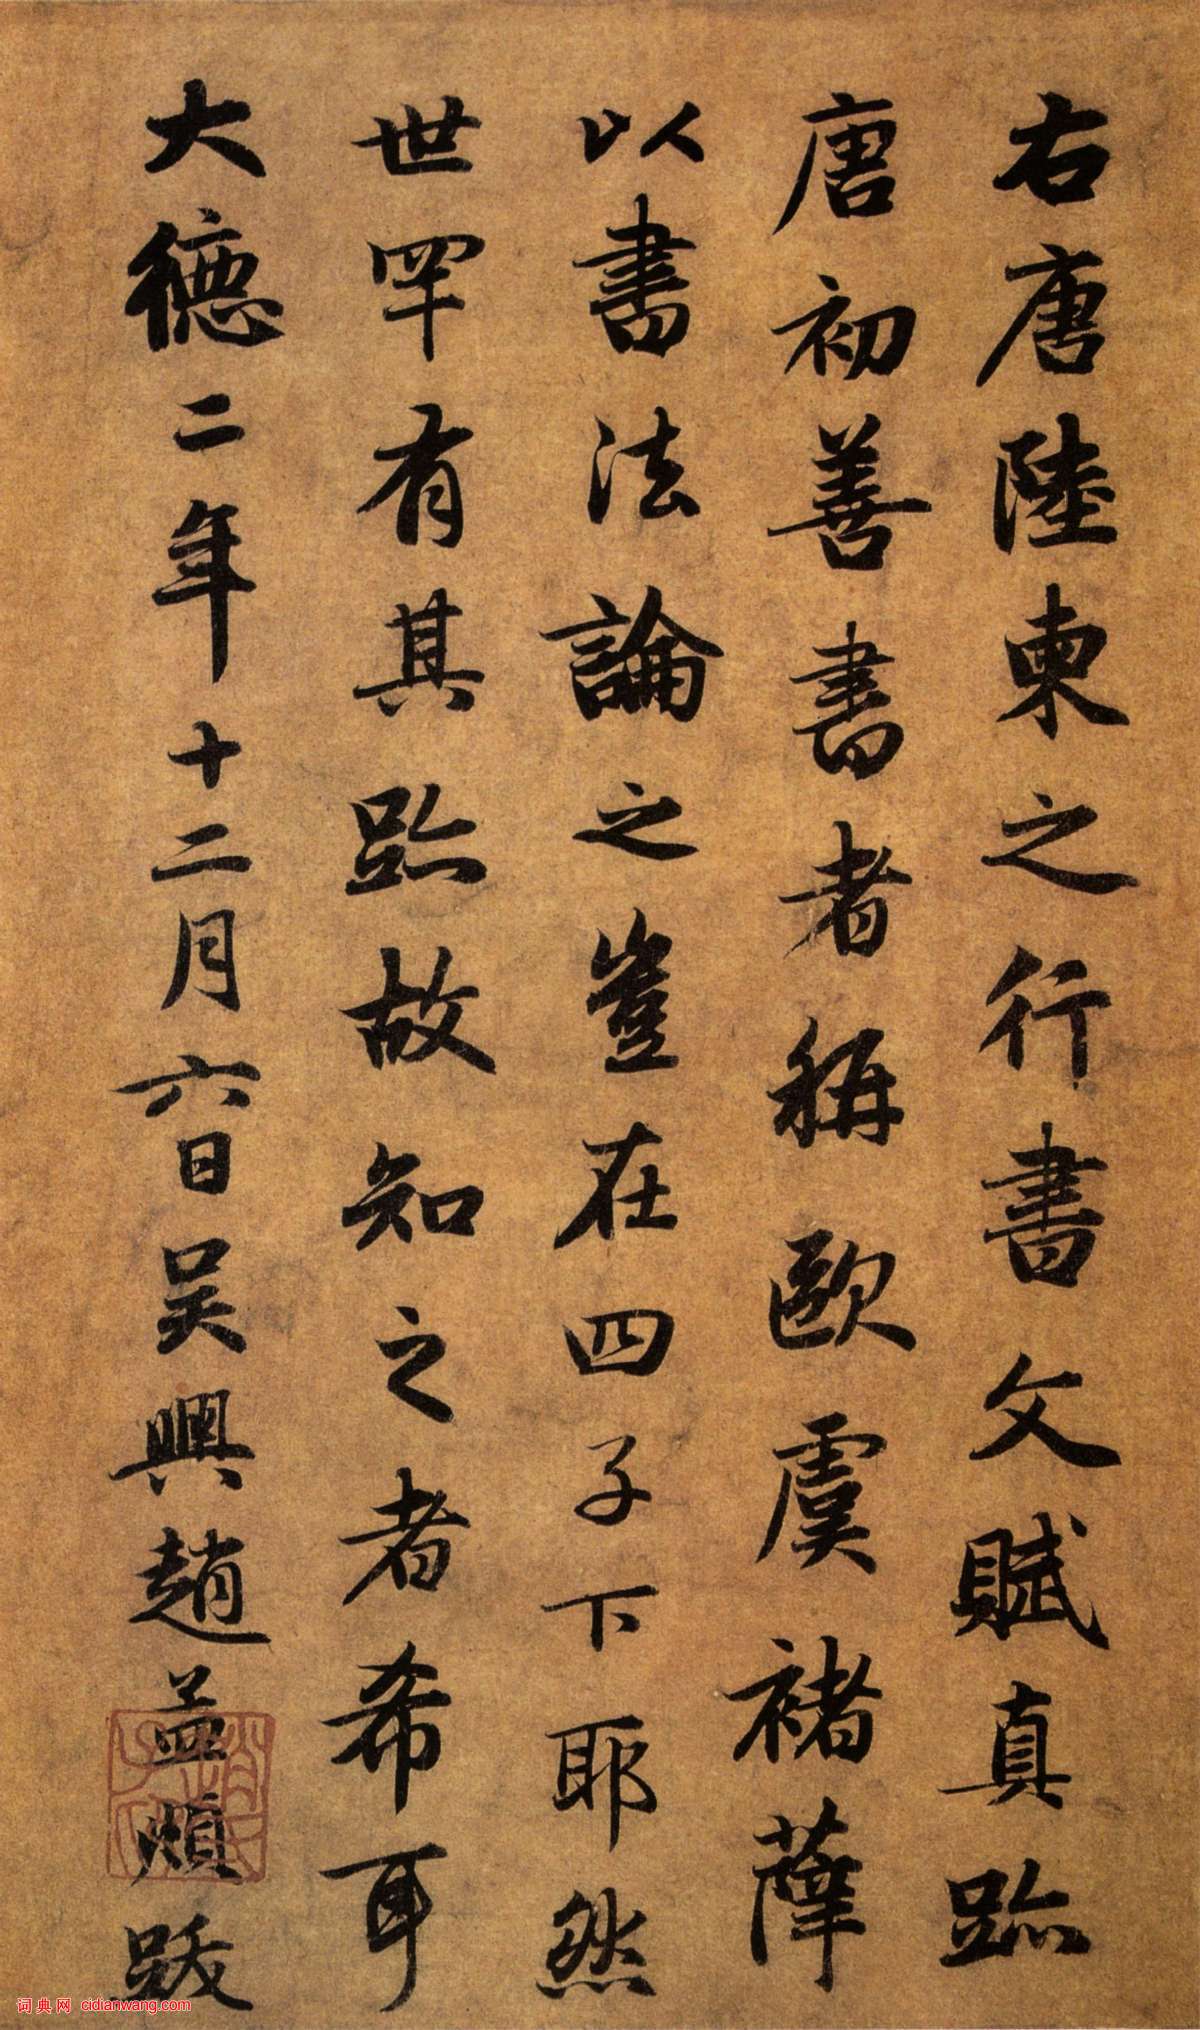 右唐陸柬之行書文賦真跡
唐初善書者稱歐虞褚薛
以書法論之豈在四子下耶然
世罕有其跡故知之者希耳
大德二年十二月六日吳興趙孟頫跋
趙氏子昂
词典网 cidianwang.com